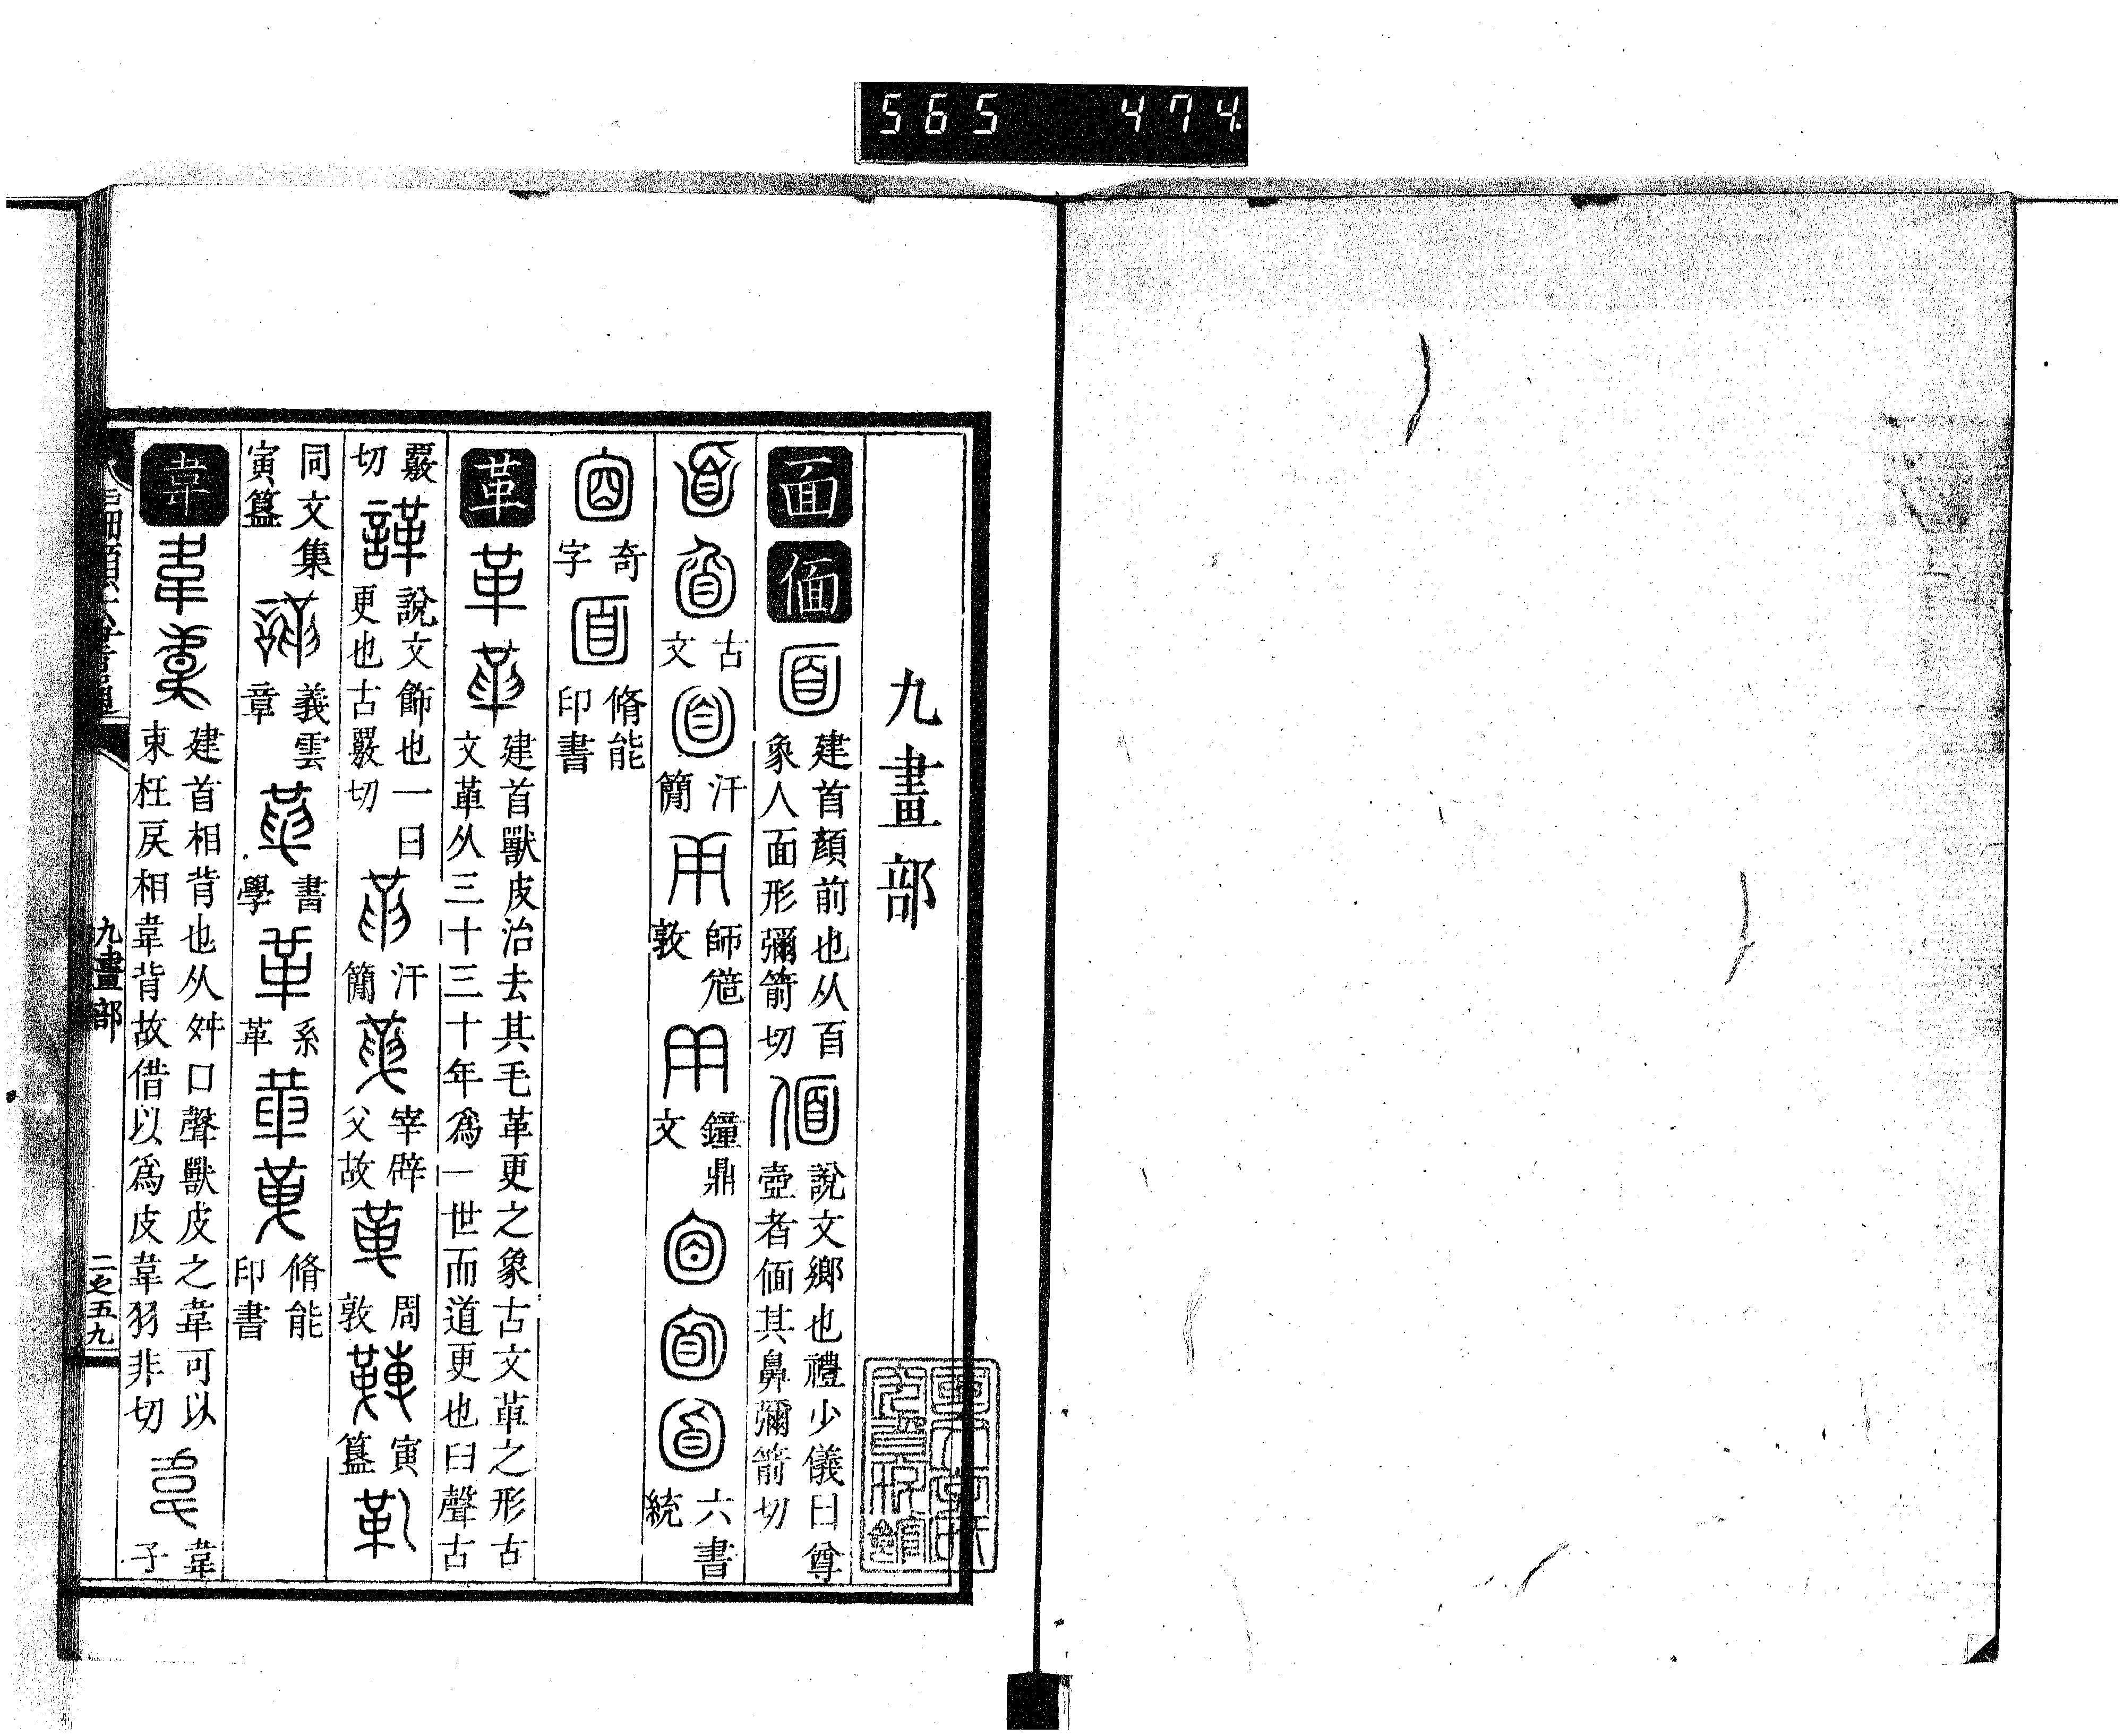 565 474
九畫部
面 偭
建首顏前也从𦣻
象人面形彌箭切
說文鄉也禮少儀曰尊
壺者偭其鼻彌箭切
古文
汗簡
師𬨨敦
鐘鼎文
六書統
奇字
脩能印書
革
建首獸皮治去其毛革更之象古文革之形古
文革从三十三十年為一世而道更也臼聲古
覈切
說文飾也一曰
更也古覈切
汗簡
宰辟父敦
周敦
寅簋
同文集
寅簋
義雲章
書學
系革
脩能印書
韋
建首相背也从舛口聲獸皮之韋可以
束枉戾相韋背故借以為皮韋羽非切
韋子
九畫部
二之五九